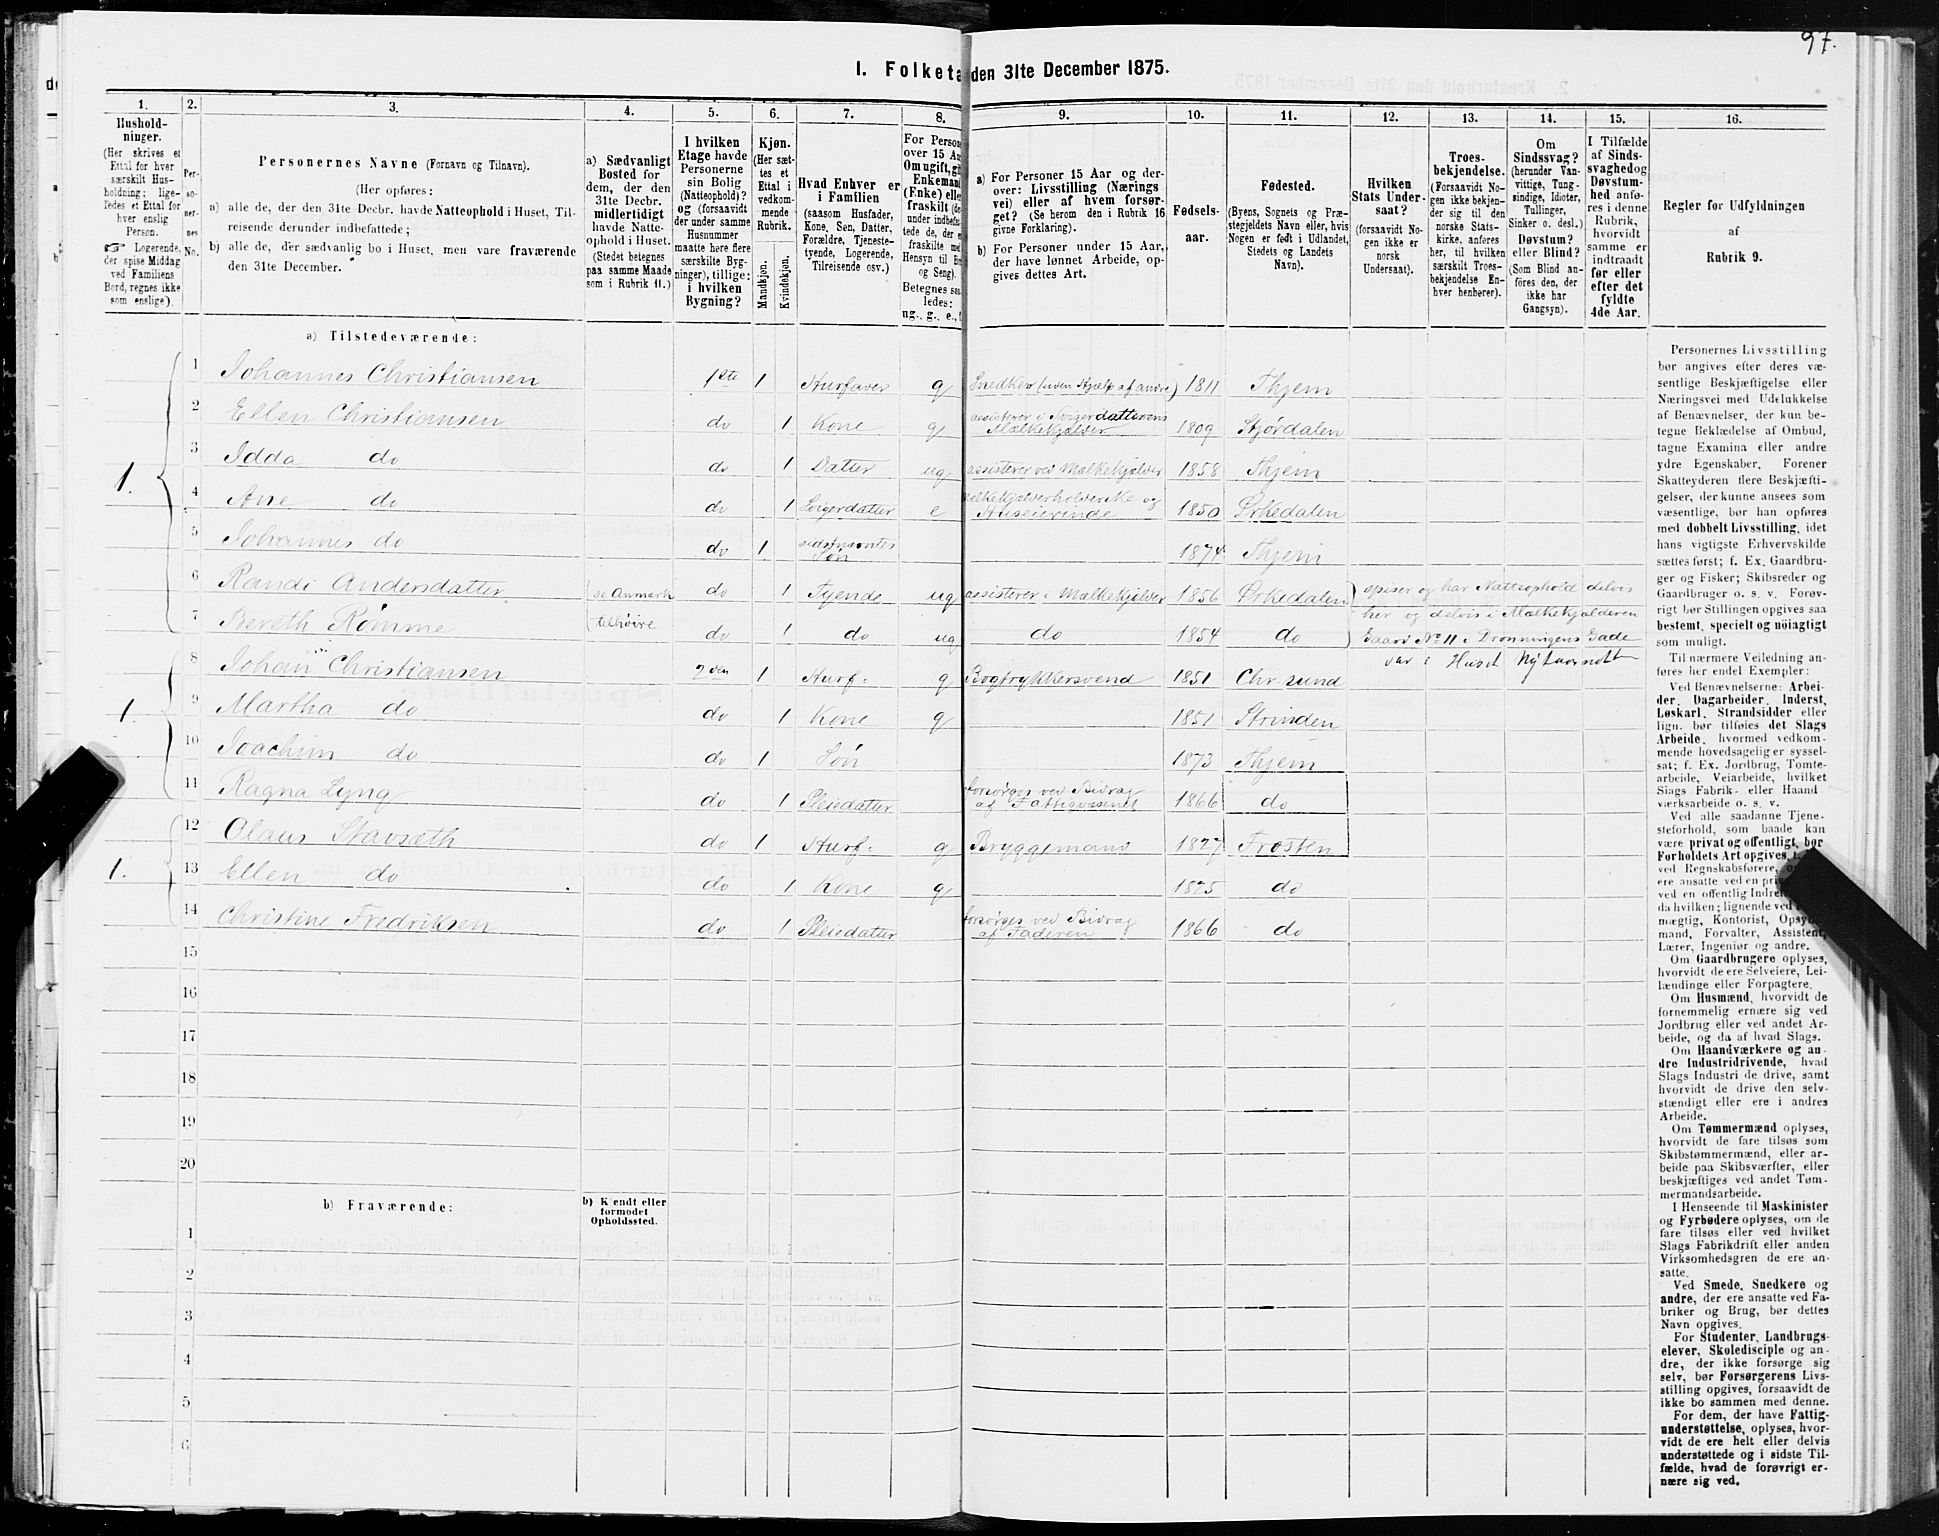 97.
I. Folketa den 31te December 1875.
1. 2. 3. 4. 5. 6. 7. 8. 9. 10. 11. 12. 13. 14. 15. 16.
Hushold-
ninger.
(Her skrives et
Ettal for hver
særskilt Hus-
holdning; lige-
ledes et Ettal for
hver enslig
Person.
☞ Logerende,
der spise Middag
ved Familiens
Bord, regnes ikke
som enslige).
Per-
so-
ner-
nes
No.
Personernes Navne (Fornavn og Tilnavn).
(Her opføres:
a) alle de, der den 31te Decbr. havde Natteophold i Huset, Til-
reisende derunder indbefattede;
b) alle de, der sædvanlig bo i Huset, men vare fraværende
den 31te December.
a) Sædvanligt
Bosted for
dem, der den
31te Decbr.
midlertidigt
havde Natte-
ophold i Huset.
(Stedet betegnes
paa samme Maade
som i Rubrik 11.)
I hvilken
Etage havde
Personerne
sin Bolig
(Natteophold)?
og (forsaavidt
der under samme
Husnummer
maatte høre flere
særskilte Byg-
ninger), tillige:
i hvilken
Bygning?
Kjøn.
(Her sæt-
tes et
Ettal i
vedkom-
mende
Rubrik.
Mandkjøn.
Kvindekjøn.
Hvad Enhver er
i Familien
(saasom Husfader,
Kone, Søn, Datter,
Forældre, Tjeneste-
tyende, Logerende,
Tilreisende osv.)
For Person
over 15 Aa
Om ugift, gi
Enkemand
(Enke) elle
fraskilt (de
under indbefat-
tede de, der e
fraskilte med
Hensyn til Bo
og Seng).
Betegnes saa
ledes:
ug., g., e., f
a) For Personer 15 Aar og der-
over: Livsstilling (Nærings
vei) eller af hvem forsør-
get? (Se herom den i Rubrik 16
givne Forklaring).
b) For Personer under 15 Aar,
der have lønnet Arbeide, op-
gives dettes Art.
Fødsels-
aar.
Fødested.
(Byens, Sognets og Præ-
stegjeldets Navn eller, hvis
Nogen er født i Udlandet,
Stedets og Landets
Navn).
Hvilken
Stats Under-
saat?
(forsaavidt No-
gen ikke er
norsk
Undersaat).
Troes-
bekjendelse.
(Forsaavidt No-
gen ikke bekjen-
der sig til den
norske Stats-
kirke, anføres
her, til hvilken
særskilt Troes-
bekjendelse En-
hver henhører).
Om
Sindssvag?
(herunder Van-
vittige, Tung-
sindige, Idioter,
Tullinger,
Sinker o. desl.)
Døvstum?
eller Blind?
(Som Blind an-
føres den, der
ikke har
Gangsyn).
I Tilfælde
af Sinds-
svaghedog
Døvstum-
hed anfø-
res i denne
Rubrik,
hvorvidt
samme er
indtraadt
før eller
efter det
fyldte
4de Aar.
Regler for Udfyldningen
af
Rubrik 9.
a) Tilstedeværende:
1 Johannes Christiansen 1ste 1 Husfader g Snedker (uden Hjælp af andre) 1811 Thjem
2 Ellen Christiansen do 1 Kone g assisterer i Svigerdatterens Mælkekjelder 1809 Stjørdalen
3 Idda do do 1 Datter ug assisterer ved Mælkekjelder 1858 Thjem
1.
4 Ane do do 1 Svigerdatter e Mælkekjelderholderske og Huseierinde 1850 Ørkedalen
5 Johannes do do 1 sidstnævntes Søn 1874 Thjem
6 Randi Andersdatter (se Anmærk do 1 Tyende ug assisterer i Mælkekjelder 1856 Ørkedalen spiser og har Natteophold delvis
her og delvis i Mælkekjelderen
7 Bereth Rømme tilhøire do 1 do ug do 1854 do Gaard No 11 i Dronningens Gade
var i Huset Nytaarsnatt
8 Johan Christiansen 2den 1 Husf. g Bogtrykkersvend 1851 Chr.sund
1.
9 Martha do do 1 Kone g 1851 Strinden
10 Joachim do do 1 Søn 1873 Thjem
11 Ragna Lyng do 1 Pleiedatter forsørges ved Bidrag af Fattigvæsenet 1866 do
12 Olaus Stavsæth do 1 Husf. g Bryggemand 1827 Frosten
1.
13 Ellen do do 1 Kone g 1825 do
14 Christine Fredriksen do 1 Pleiedatter forsørges ved Bidrag af Faderen 1866 do
15
16
17
18
19
20
b) Fraværende:
b) Kjendt eller
formodet
Opholdssted.
1
2
3
4
5
6
Personernes Livsstilling
bør angives efter deres væ-
sentlige Beskjæftigelse eller
Næringsvei med Udelukkelse
af Benævnelser, der kun be-
tegne Beklædelse af Ombud,
tagne Examina eller andre
ydre Egenskaber. Forener
Skatteyderen flere Beskjæfti-
gelser, der kunne ansees som
væsentlige, bør han opføres
med dobbelt Livsstilling, idet
hans vigtigste Erhvervskilde
sættes først; f. Ex. Gaardbru-
ger og Fisker; Skibsreder og
Gaardbruger o. s. v. Forøv-
rigt bør Stillingen opgives saa
bestemt, specielt og nøiagtigt
som muligt.
Til nærmere Veiledning an-
føres her endel Exempler:
Ved Benævnelserne: Arbei-
der, Dagarbeider, Inderst,
Løskarl, Strandsidder eller
lign. bør tilføies det Slags
Arbeide, hvormed vedkom-
mende hovedsagelig er syssel-
sat; f. Ex. Jordbrug, Tomte-
arbeide, Veiarbeide, hvilket
Slags Fabrik- eller Haand
værksarbeide o. s. v.
Ved alle saadanne Tjene-
steforhold, som baade kan
være privat og offentlig, bør
Forholdets Art opgives,
ved Regnskabsførere,
ere ansatte ved en
ved en offentlig
da hvilken; lignende ved
mægtig, Kontorist,
mand, Forvalter, Assistent,
Lærer, Ingeniør og andre.
Om Gaardbrugere oplyses,
hvorvidt de ere Selveiere, Lei-
lændinge eller Forpagtere.
Om Husmænd, hvorvidt de
fornemmelig ernære sig ved
Jordbrug eller ved andet Ar-
beide, og da af hvad Slags.
Om Haandværkere og an-
dre Industridrivende, hvad
Slags Industri de drive, samt
hvorvidt de drive den selv-
stændigt eller ere i andres
Arbeide.
Om Tømmermænd oplyses,
hvorvidt de fare tilsøs som
Skibstømmermænd, eller ar-
beide paa Skibsværfter, eller
beskjæftiges ved andet Tøm-
mermandsarbeide.
I Henseende til Maskinister
og Fyrbødere oplyses, om de
fare tilsøs eller ved hvilket
Slags Fabrikdrift eller anden
Virksomhedsgren de ere an-
satte.
Ved Smede, Snedkere og
andre, der ere ansatte ved Fa-
briker og Brug, bør dettes
Navn opgives.
For Studenter, Landbrugs-
elever, Skoledisciple og an-
dre, der ikke forsørge sig
selv, bør Forsørgerens Livs-
stilling opgives, forsaavidt de
ikke bo sammen med denne.
For dem, der have Fattig-
understøttelse, oplyses, hvor-
vidt de ere helt eller delvis
understøttede og i sidste Til-
fælde, hvad de forøvrigt er-
nære sig ved.